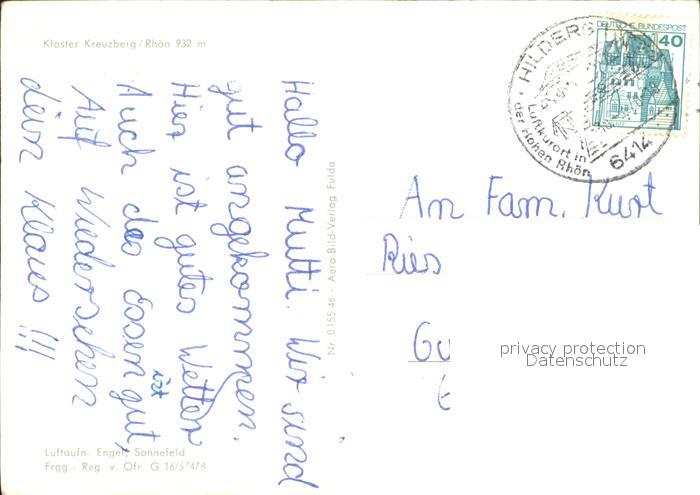 Kloster Kreuzberg/Rhön 932 m
Hallo Mutti. Wir sind
gut angekommen.
Hier ist gutes Wetter
Auch das Essen ist gut,
Auf Wiedersehen
dein Klaus !!!
Luftaufn. Engel, Sonnefeld
Frgg.: Reg. v. Ofr. G 16/57478
Nr. 0155 46 · Aero-Bild-Verlag Fulda
DEUTSCHE BUNDESPOST
40
HILDERS
Luftkurort in
der Hohen Rhön
6414
An Fam. Kurt
Ries
privacy protection
Datenschutz